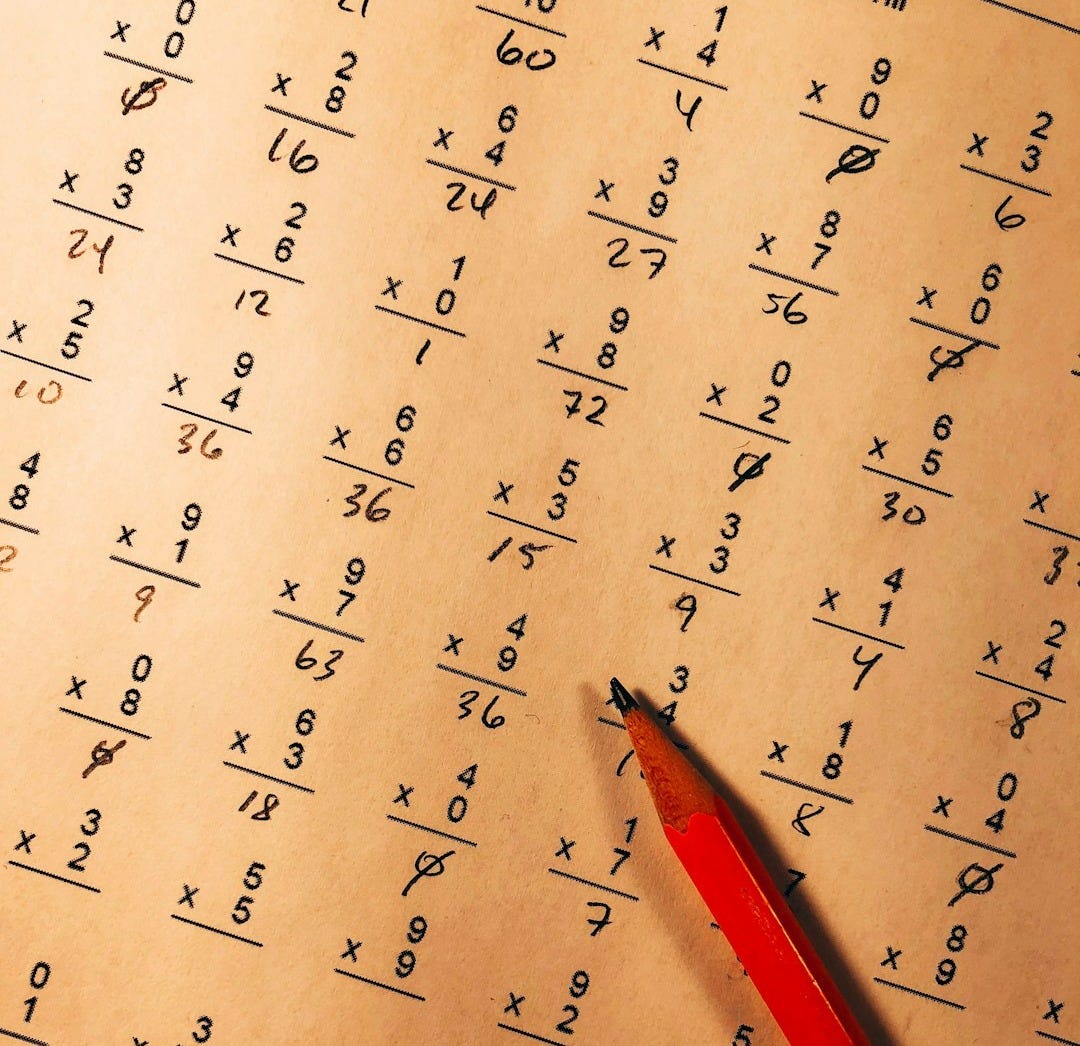 60
1
x 4
4
9
x 0
0
2
x 3
6
0
x 0
0
2
x 8
16
6
x 4
24
3
x 9
27
8
x 7
56
6
x 0
0
8
x 3
24
2
x 6
12
1
x 0
1
9
x 8
72
0
x 2
0
6
x 5
30
x
2
x 5
10
9
x 4
36
6
x 6
36
5
x 3
15
3
x 3
9
4
x 1
4
2
x 4
8
4
8
2
9
x 1
9
9
x 7
63
4
x 9
36
3
4
1
x 8
8
0
x 4
0
0
x 8
0
6
x 3
18
4
x 0
0
1
x 7
7
7
8
x 9
x
3
x 2
5
x 5
9
x 9
9
x 2
5
0
1
x 3